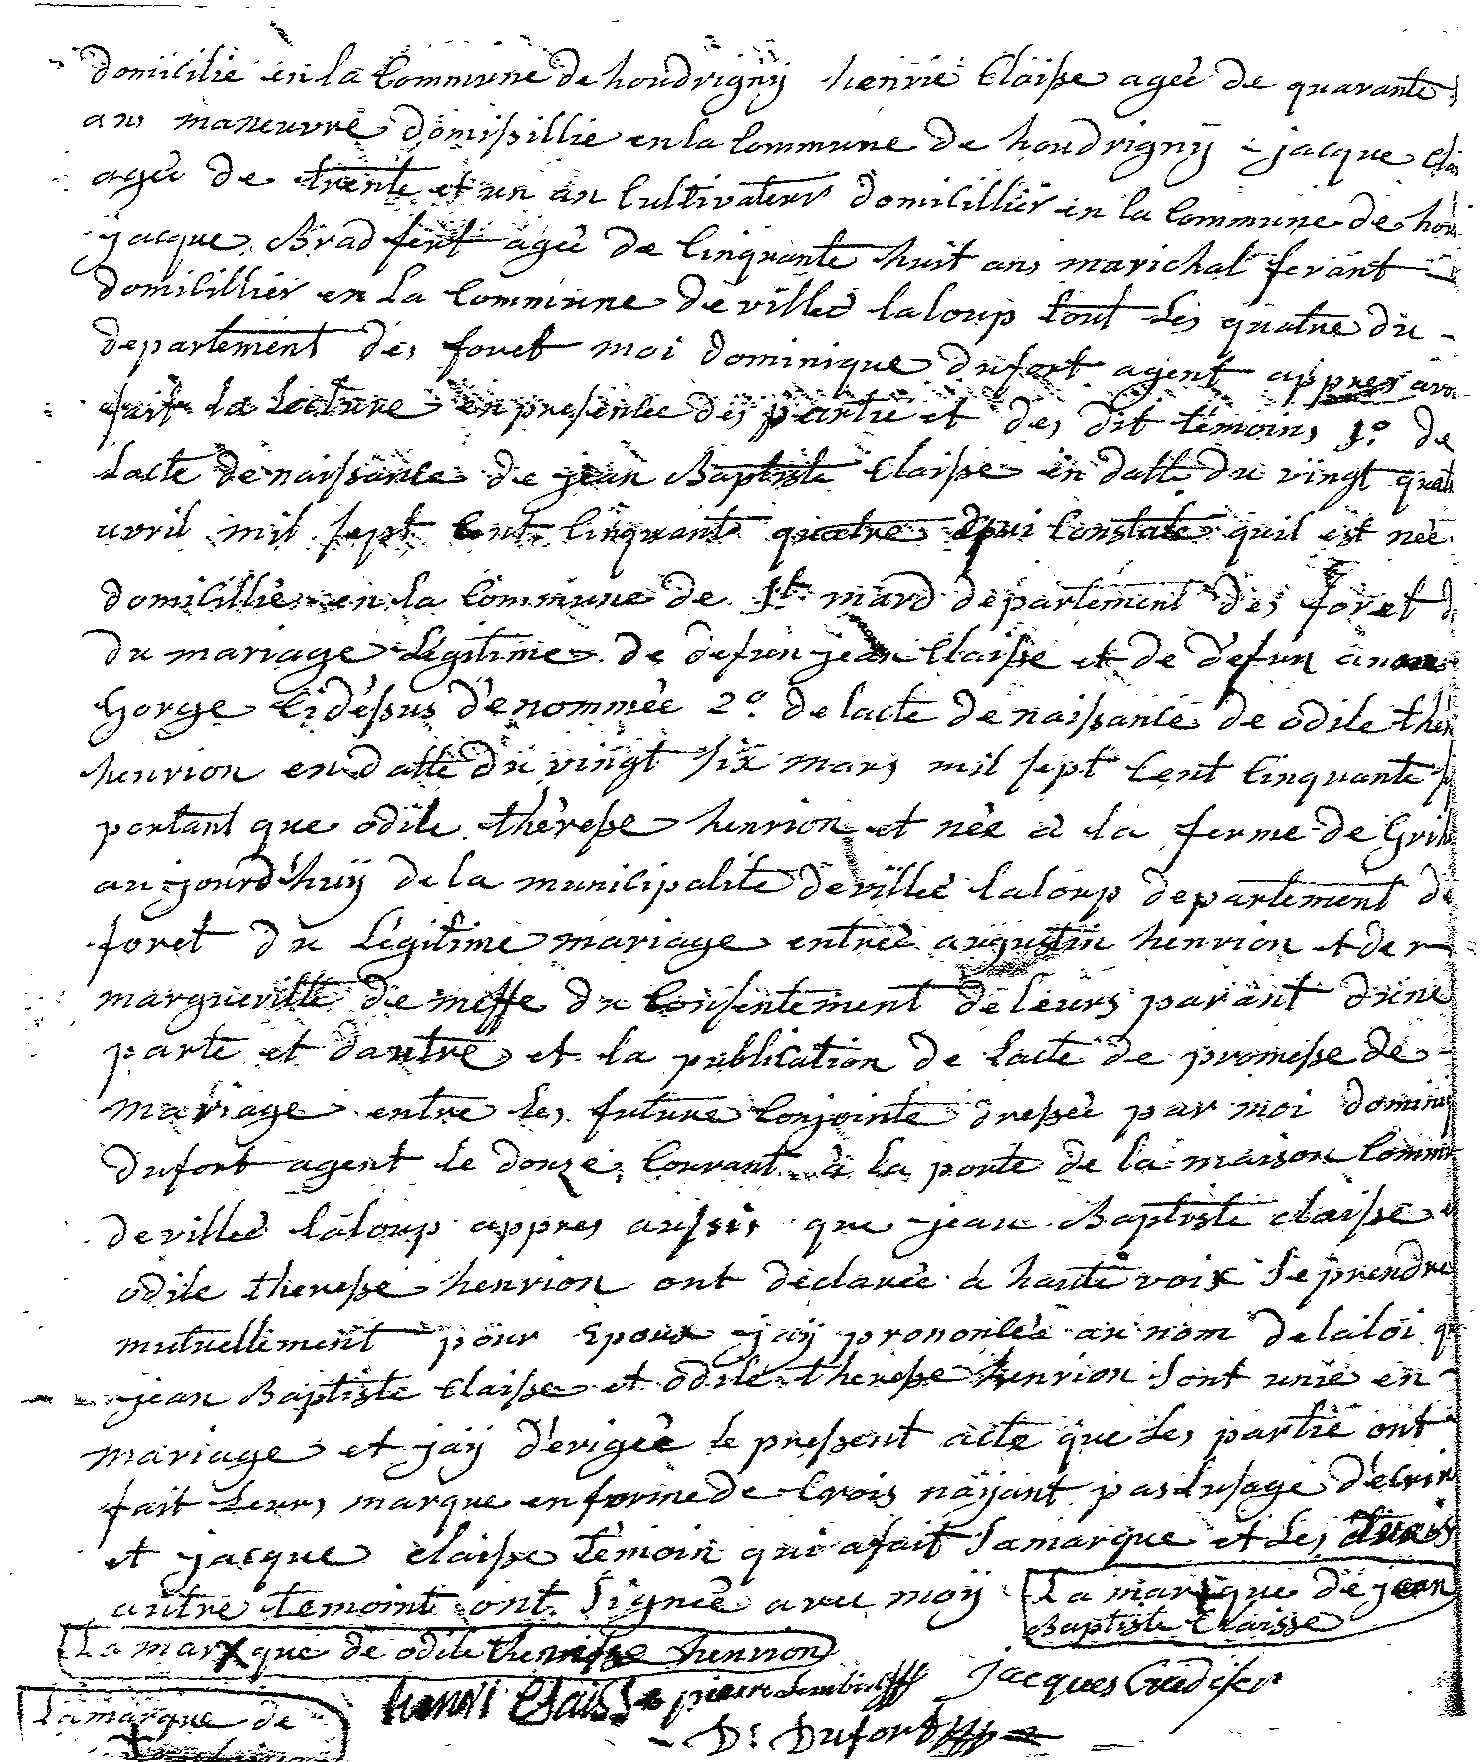 domicilié en la Commune de houdrigny henrie Claisse agée de quarante
ans maneuvre domissillie en la Commune de houdrigny jacque Clai
agée de trente et un an Cultivateur domicillier en la Commune de hou
jacque Bradfert agée de Cinquante huit ans marichal ferant
domicillier en La Commune de villée laloup tout Les quatre du
departement des foret moi dominique dufort agent appres avo
fait la Lecture en presencee des partie et des dit témoins 1.º de
Lacte de naissance de jean Baptiste Claisse en datte du vingt quat
avril mil sept Cent Cinquante quatre qui Constate quil est née
domicillie en la Commune de St mard département des foret
du mariage Légitime de defun jean Claisse et de défun anne
Gorge Cidéssus dénommée 2º de lacte de naissance de odile thé
henrion en datte du vingt six mars mil sept Cent Cinquante
portant que odile thèresse henrion et née a la ferme de Gri
aujourd'huÿ de la municipalite de villée laloup département de
foret du Légitime mariage entrée augustin henrion et de
margueritte de messe du Consentement de leurs parant dune
parte et dautre et la publication de Lacte de promesse de
mariage entre les future Conjointe dressée par moi domini
dufort agent le douze Courant à la porte de la maison Comm
de villée laloup appres aussis que jean Baptiste claisse
odile theresse henrion ont déclarée a haute voix Se prendre
mutuellement pour Epoux jaÿ prononcée au nom de la loi q
jean Baptiste Claisse et odile theresse henrion Sont unie en
mariage et jaÿ dérigée le pressent acte que Les partie ont
fait Leurs marque en forme de Crois näyant pas Lusage décrir
et jacque claisse témoin qui afait Samarque et Les trois
autre temoint ont Signée avec moÿ La marxque de jean
Baptiste Claisse
La marxque de odile theresse henrion
henri Claisse pierre jacques
D: Dufort
La marque de